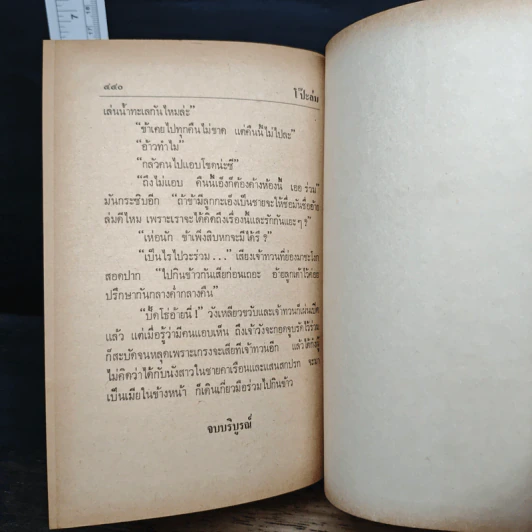 ๔๔๐ โป๊ะล้ม
เล่นน้ำทะเลกันไหมล่ะ”
“ข้าเคยไปทุกคืนไม่ขาด แต่คืนนี้ไม่ไปละ”
“อ้าวทำไม”
“กลัวคนไปแอบโขดน่ะซี”
“ถึงไม่แอบ คืนนี้เอ็งก็ต้องค้างห้องนี้ เออ ร่วม”
มันกระซิบอีก “ถ้าข้ามีลูกกะเอ็งเป็นชายจะให้ชื่อมันชื่ออ้าย
ล่มดีไหม เพราะเราจะได้คิดถึงเรื่องนี้และรักกันแยะ ๆ ?”
“เห่อนัก ข้าเพิ่งสิบหกจะมีได้รึ ?”
“เป็นไรไปวะร่วม...” เสียงเจ้าทวนที่ย่องมาชะโงก
สอดปาก “ไปกินข้าวกันเสียก่อนเถอะ อ้ายลูกเต้าไว้ค่อย
ปรึกษากันกลางค่ำกลางคืน”
“ปัดโธ่อ้ายนี่ !” วังเหลียวขวับและเจ้าทวนก็เผ่น
แล้ว แต่เมื่อรู้ว่ามีคนแอบเห็น ถึงเจ้าวังจะกอดจูบรัดไว้ร่วม
ก็สะบัดจนหลุดเพราะเกรงจะเสียที่เจ้าทวนอีก แล้ว
ไม่คิดว่าได้กับนังสาวในชายคาเรือนและแสนสกปรก จะมา
เป็นเมียในข้างหน้า ก็เดินเกี่ยวมือร่วมไปกินข้าว
จบบริบูรณ์